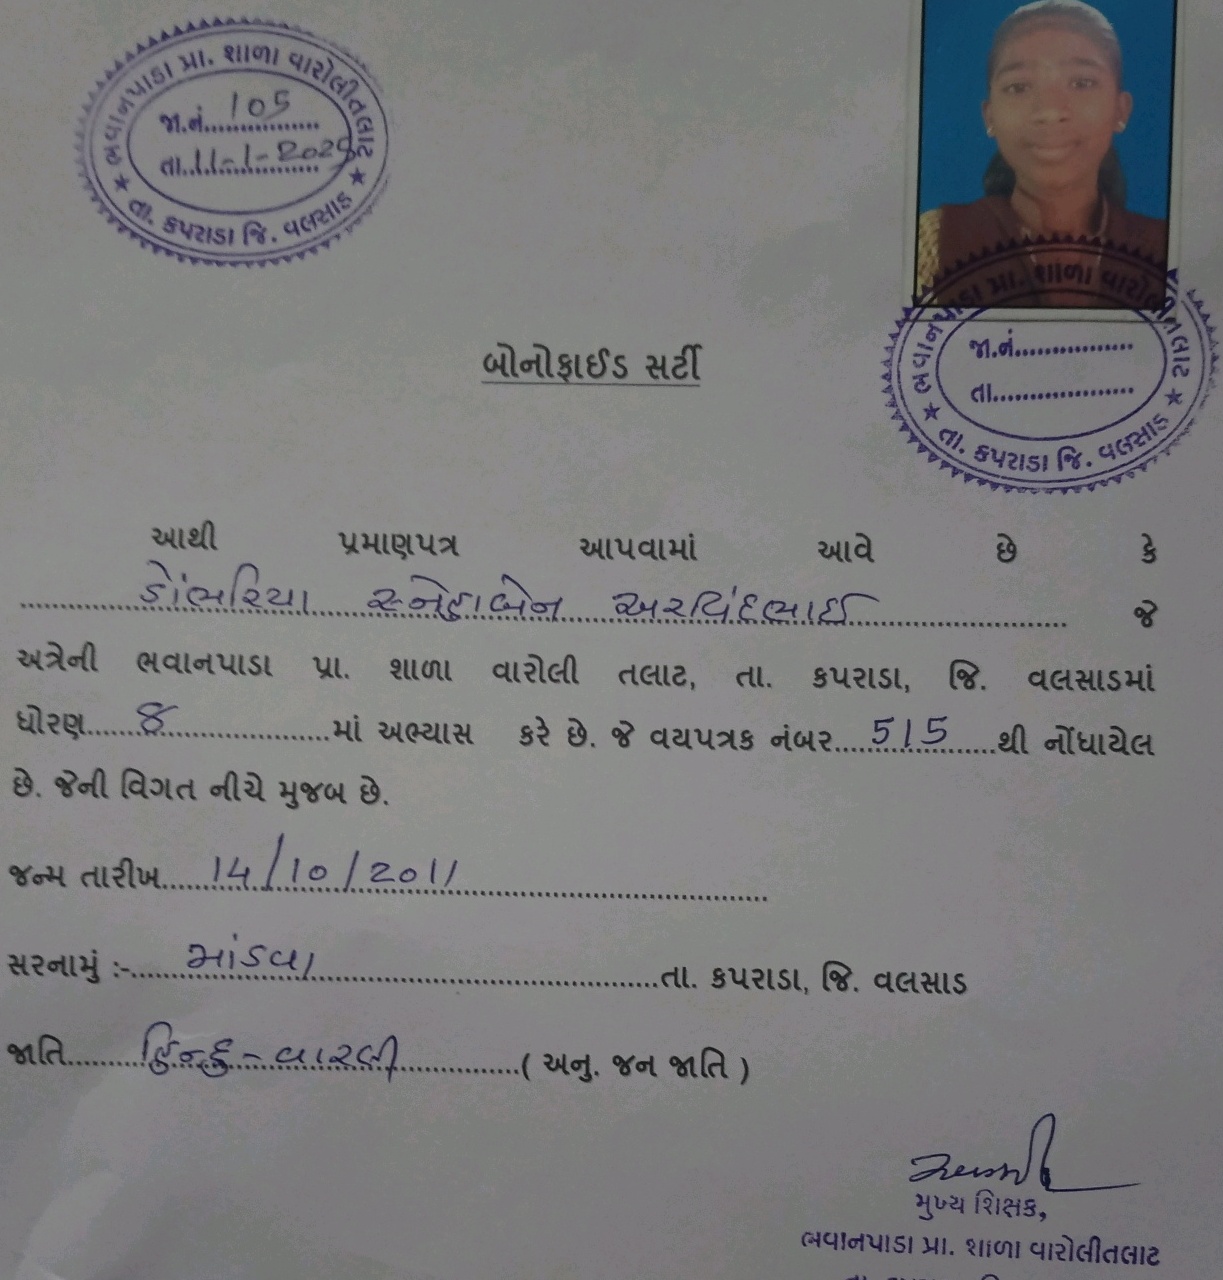 ભવાનપાડા પ્રા. શાળા વારોલીતલાટ
જા.નં. 105
તા. 11-1-2025
★ તા. કપરાડા જિ. વલસાડ ★
ભવાનપાડા પ્રા. શાળા વારોલીતલાટ
જા.નં.
તા.
★ તા. કપરાડા જિ. વલસાડ ★
બોનોફાઈડ સર્ટી
આથી પ્રમાણપત્ર આપવામાં આવે છે કે
ડોંભરિયા સ્નેહાબેન અરવિંદભાઈ જે
અત્રેની ભવાનપાડા પ્રા. શાળા વારોલી તલાટ, તા. કપરાડા, જિ. વલસાડમાં
ધોરણ 8 માં અભ્યાસ કરે છે. જે વયપત્રક નંબર 515 થી નોંધાયેલ
છે. જેની વિગત નીચે મુજબ છે.
જન્મ તારીખ 14/10/2011
સરનામું :- માંડવા તા. કપરાડા, જિ. વલસાડ
જાતિ હિન્દુ - વારલી ( અનુ. જન જાતિ )
મુખ્ય શિક્ષક,
ભવાનપાડા પ્રા. શાળા વારોલીતલાટ